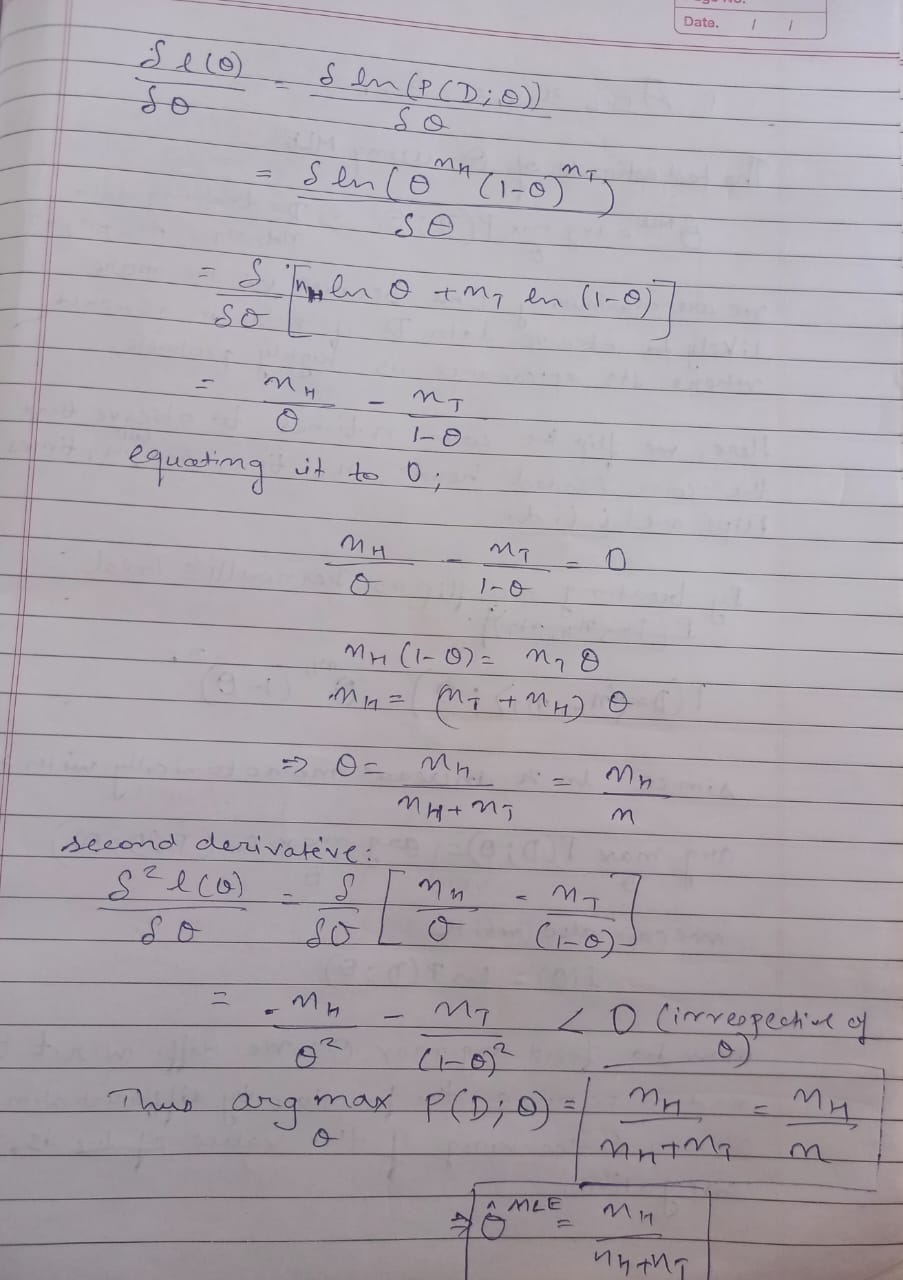 Date. / /
δl(θ)/δθ = δ ln(P(D;θ))/δθ
= δ ln(θ^(n_H) (1-θ)^(n_T))/δθ
= δ/δθ [n_H ln θ + n_T ln (1-θ)]
= n_H/θ - n_T/(1-θ)
equating it to 0;
n_H/θ - n_T/(1-θ) = 0
n_H (1-θ) = n_T θ
n_H = (n_T + n_H) θ
⇒ θ = n_H/(n_H + n_T) = n_H/n
second derivative:
δ²l(θ)/δθ = δ/δθ [n_H/θ - n_T/(1-θ)]
= -n_H/θ² - n_T/(1-θ)² < 0 (irrespective of
θ)
Thus arg max_θ P(D;θ) = n_H/(n_H + n_T) = n_H/n
⇒ θ̂^MLE = n_H/(n_H + n_T)